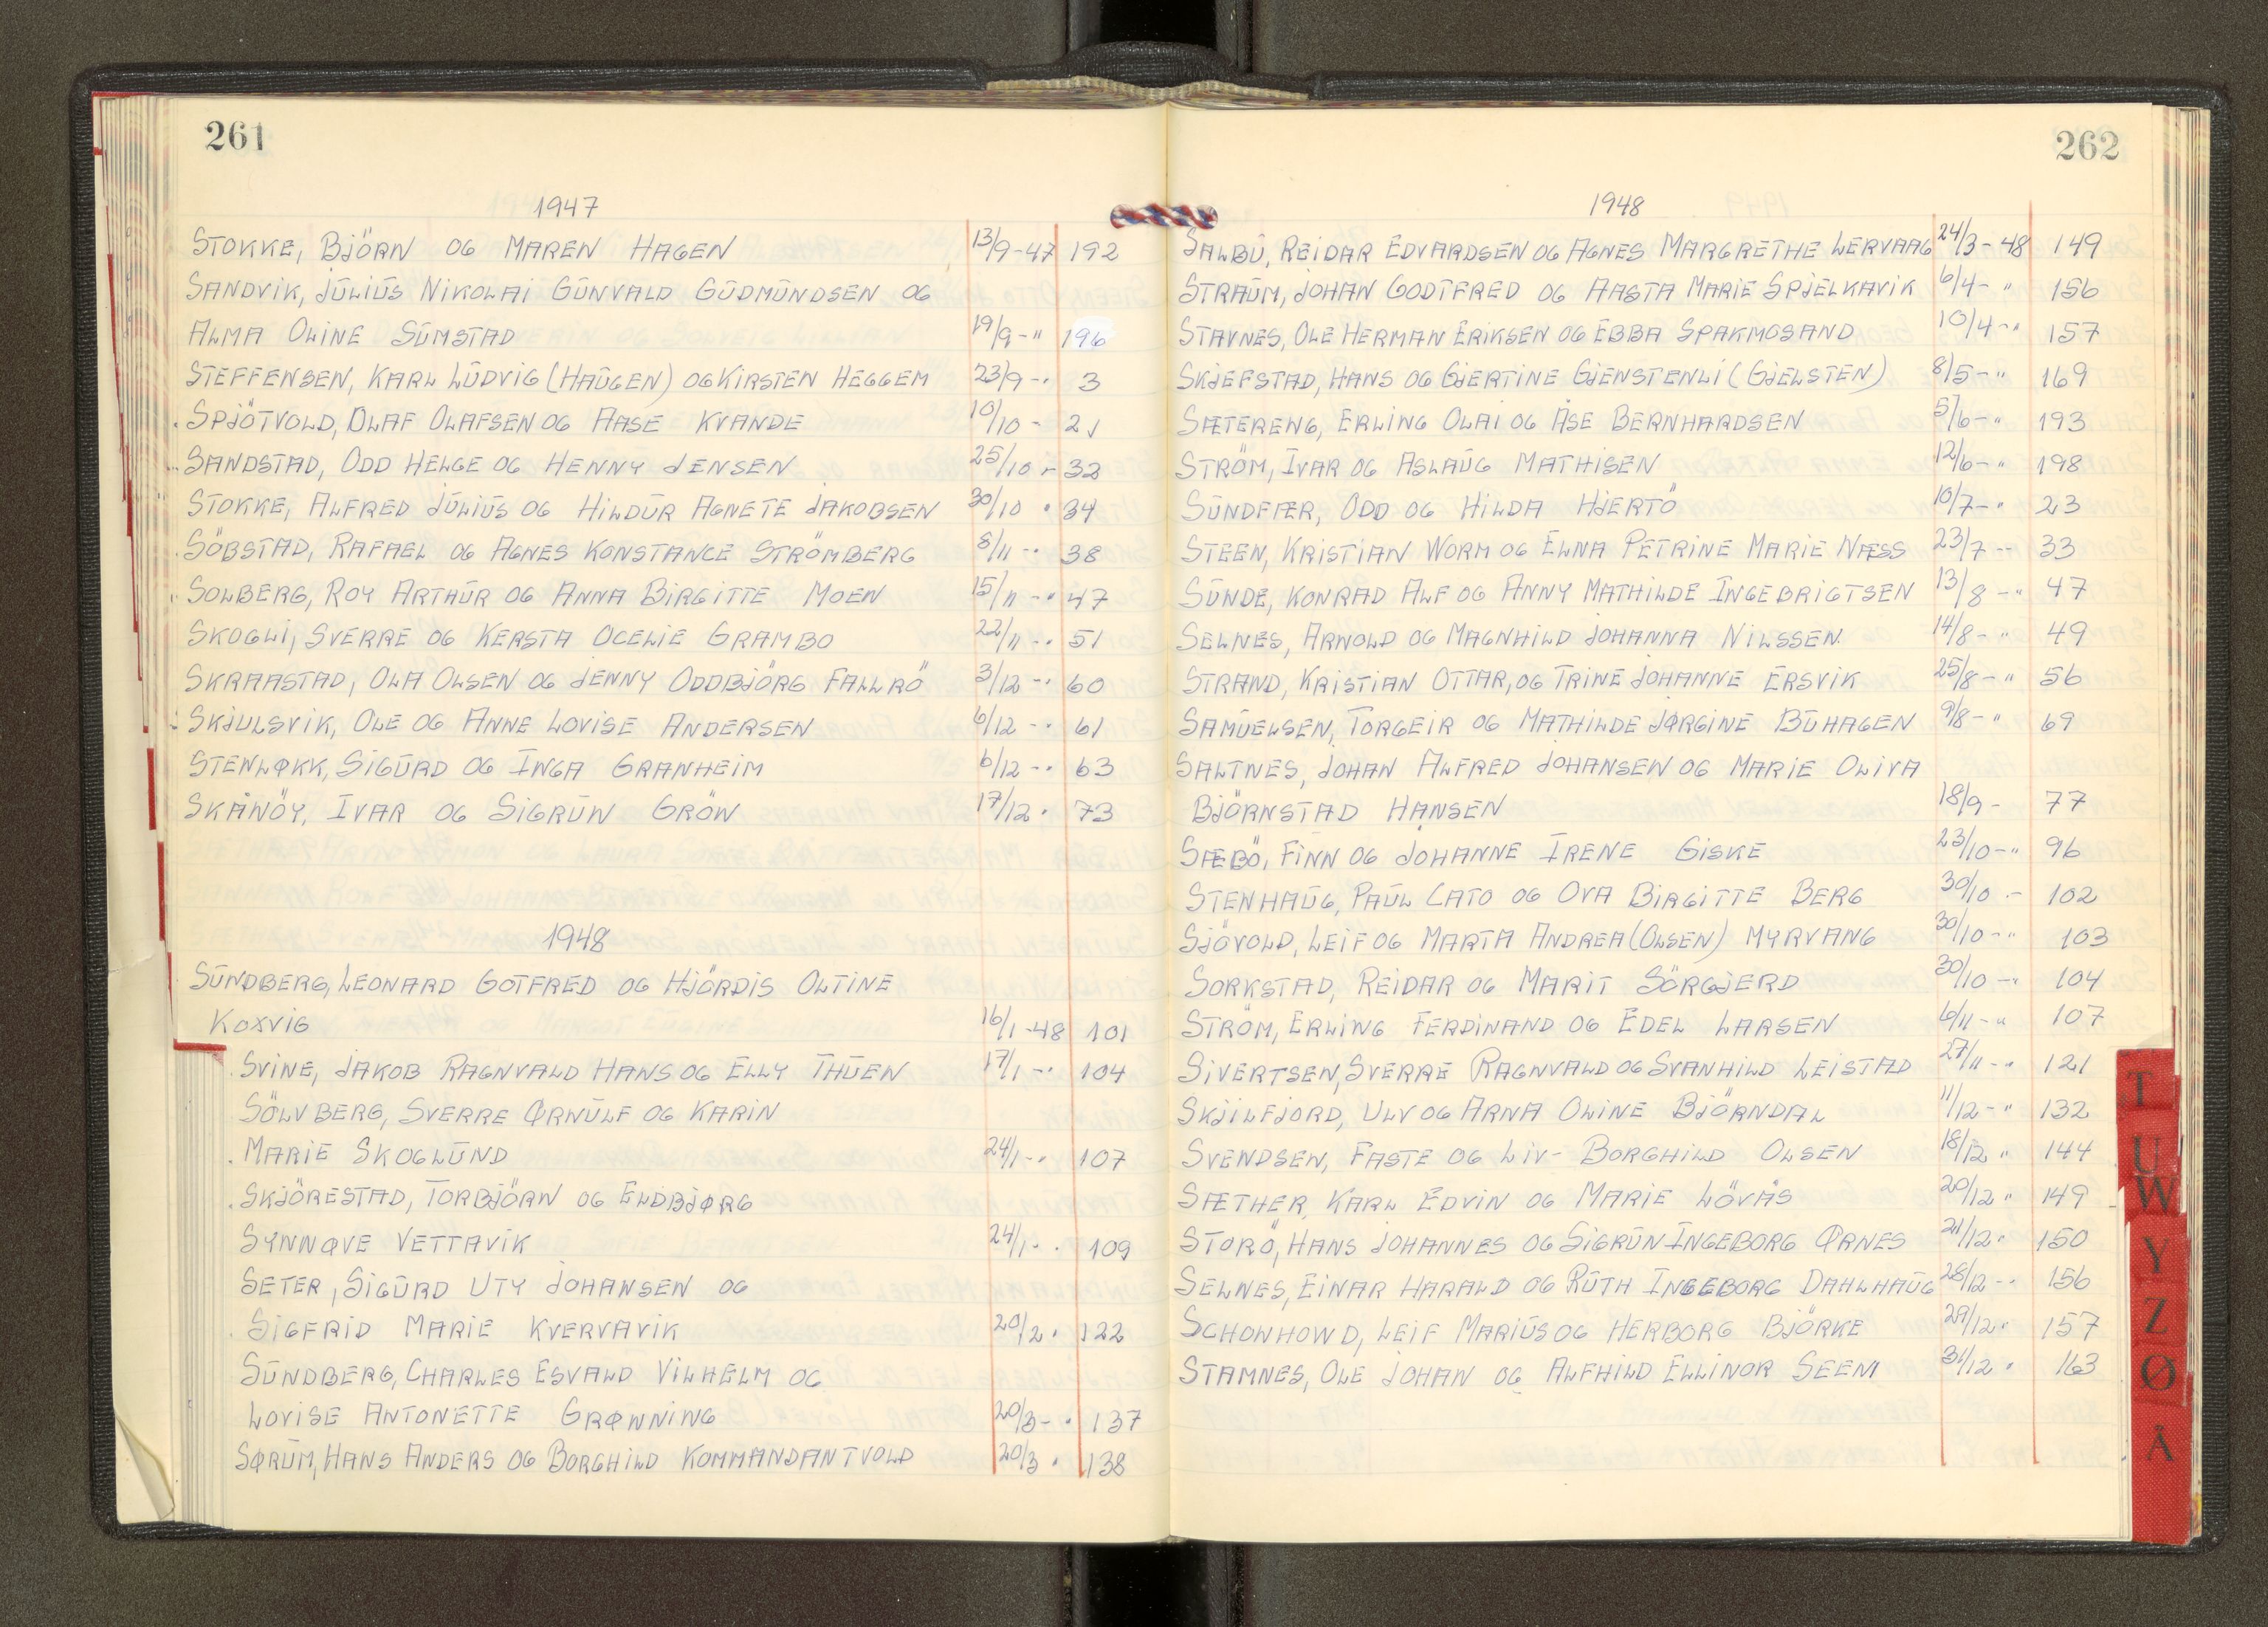 261
1947
STOKKE, BJÖRN OG MAREN HAGEN 13/9-47 192
SANDVIK, JŪLIŪS NIKOLAI GŪNVALD GŪDMŪNDSEN OG
ALMA OLINE SŪMSTAD 19/9-" 196
STEFFENSEN, KARL LŪDVIG (HAŪGEN) OG KIRSTEN HEGGEM 23/9-" 3
SPJÖTVOLD, OLAF OLAFSEN OG AASE KVANDE 10/10 - 21
SANDSTAD, ODD HELGE OG HENNY JENSEN 25/10 - 32
STOKKE, ALFRED JŪLIŪS OG HILDŪR AGNETE JAKOBSEN 30/10 " 34
SÖBSTAD, RAFAEL OG AGNES KONSTANCE STRÖMBERG 8/11 -" 38
SOLBERG, ROY ARTHŪR OG ANNA BIRGITTE MOEN 15/11 -" 47
SKOGLI, SVERRE OG KERSTA OCELIE GRAMBO 22/11 -" 51
SKRAASTAD, OLA OLSEN OG JENNY ODDBJÖRG FALLRÖ 3/12 -" 60
SKJULSVIK, OLE OG ANNE LOVISE ANDERSEN 6/12 -" 61
STENLØKK, SIGŪRD OG INGA GRANHEIM 6/12 -" 63
SKÅNÖY, IVAR OG SIGRŪN GRÖN 17/12 " 73
1948
SŪNDBERG, LEONARD GOTFRED OG HJÖRDIS OLTINE
KOXVIG 16/1-48 101
SVINE, JAKOB RAGNVALD HANS OG ELLY THŪEN 17/1 -" 104
SÖLVBERG, SVERRE ØRNŪLF OG KARIN
MARIE SKOGLŪND 24/1 -" 107
SKJÖRESTAD, TORBJÖRN OG ELDBJØRG
SYNNØVE VETTAVIK 24/1 - " 109
SETER, SIGŪRD UTY JOHANSEN OG
SIGFRID MARIE KVERVAVIK 20/2 " 122
SŪNDBERG, CHARLES ESVALD VILHELM OG
LOVISE ANTONETTE GRØNNING 20/3 - " 137
SØRŪM, HANS ANDERS OG BORGHILD KOMMANDANTVOLD 20/3 " 138
262
1948
SALBŪ, REIDAR EDVARDSEN OG AGNES MARGRETHE LERVAAG 24/3-48 149
STRAŪM, JOHAN GODTFRED OG AASTA MARIE SPJELKAVIK 6/4- " 156
STAVNES, OLE HERMAN ERIKSEN OG EBBA SPAKMOSAND 10/4-" 157
SKJEFSTAD, HANS OG GJERTINE GJENSTENLI (GJELSTEN) 8/5-" 169
SÆTERENG, ERLING OLAI OG ÅSE BERNHARDSEN 5/6-" 193
STRÖM, IVAR OG ASLAŪG MATHISEN 12/6-" 198
SŪNDFÆR, ODD OG HILDA HJERTÖ 10/7-" 23
STEEN, KRISTIAN WORM OG ELNA PETRINE MARIE NÆSS 23/7 -" 33
SŪNDE, KONRAD ALF OG ANNY MATHILDE INGEBRIGTSEN 13/8 -" 47
SELNES, ARNOLD OG MAGNHILD JOHANNA NILSSEN 14/8- " 49
STRAND, KRISTIAN OTTAR, OG TRINE JOHANNE ERSVIK 25/8-" 56
SAMŪELSEN, TORGEIR OG MATHILDE JØRGINE BŪHAGEN 9/8-" 69
SALTNES, JOHAN ALFRED JOHANSEN OG MARIE OLIVA
BJÖRNSTAD HANSEN 18/9- 77
SÆBÖ, FINN OG JOHANNE IRENE GISKE 23/10-" 96
STENHAŪG, PAŪL CATO OG OVA BIRGITTE BERG 30/10 - 102
SJÖVOLD, LEIF OG MARTA ANDREA (OLSEN) MYRVANG 30/10-" 103
SORKSTAD, REIDAR OG MARIT SÖRGJERD 30/10 -" 104
STRÖM, ERLING FERDINAND OG EDEL LARSEN 6/11-" 107
SIVERTSEN, SVERRE RAGNVALD OG SVANHILD LEISTAD 27/11-" 121
SKJILFJORD, ULV OG ARNA OLINE BJÖRNDAL 11/12-" 132
SVENDSEN, FASTE OG LIV-BORGHILD OLSEN 18/12 " 144
SÆTHER, KARL EDVIN OG MARIE LÖVÅS 20/12 " 149
STORÖ, HANS JOHANNES OG SIGRŪN INGEBORG ØRNES 21/12 " 150
SELNES, EINAR HARALD OG RŪTH INGEBORG DAHLHAŪG 28/12 -" 156
SCHONHOWD, LEIF MARIŪS OG HERBORG BJÖRKE 29/12 " 157
STAMNES, OLE JOHAN OG ALFHILD ELLINOR SEEM 31/12 " 163
T
U
W
Y
Z
Ø
Å